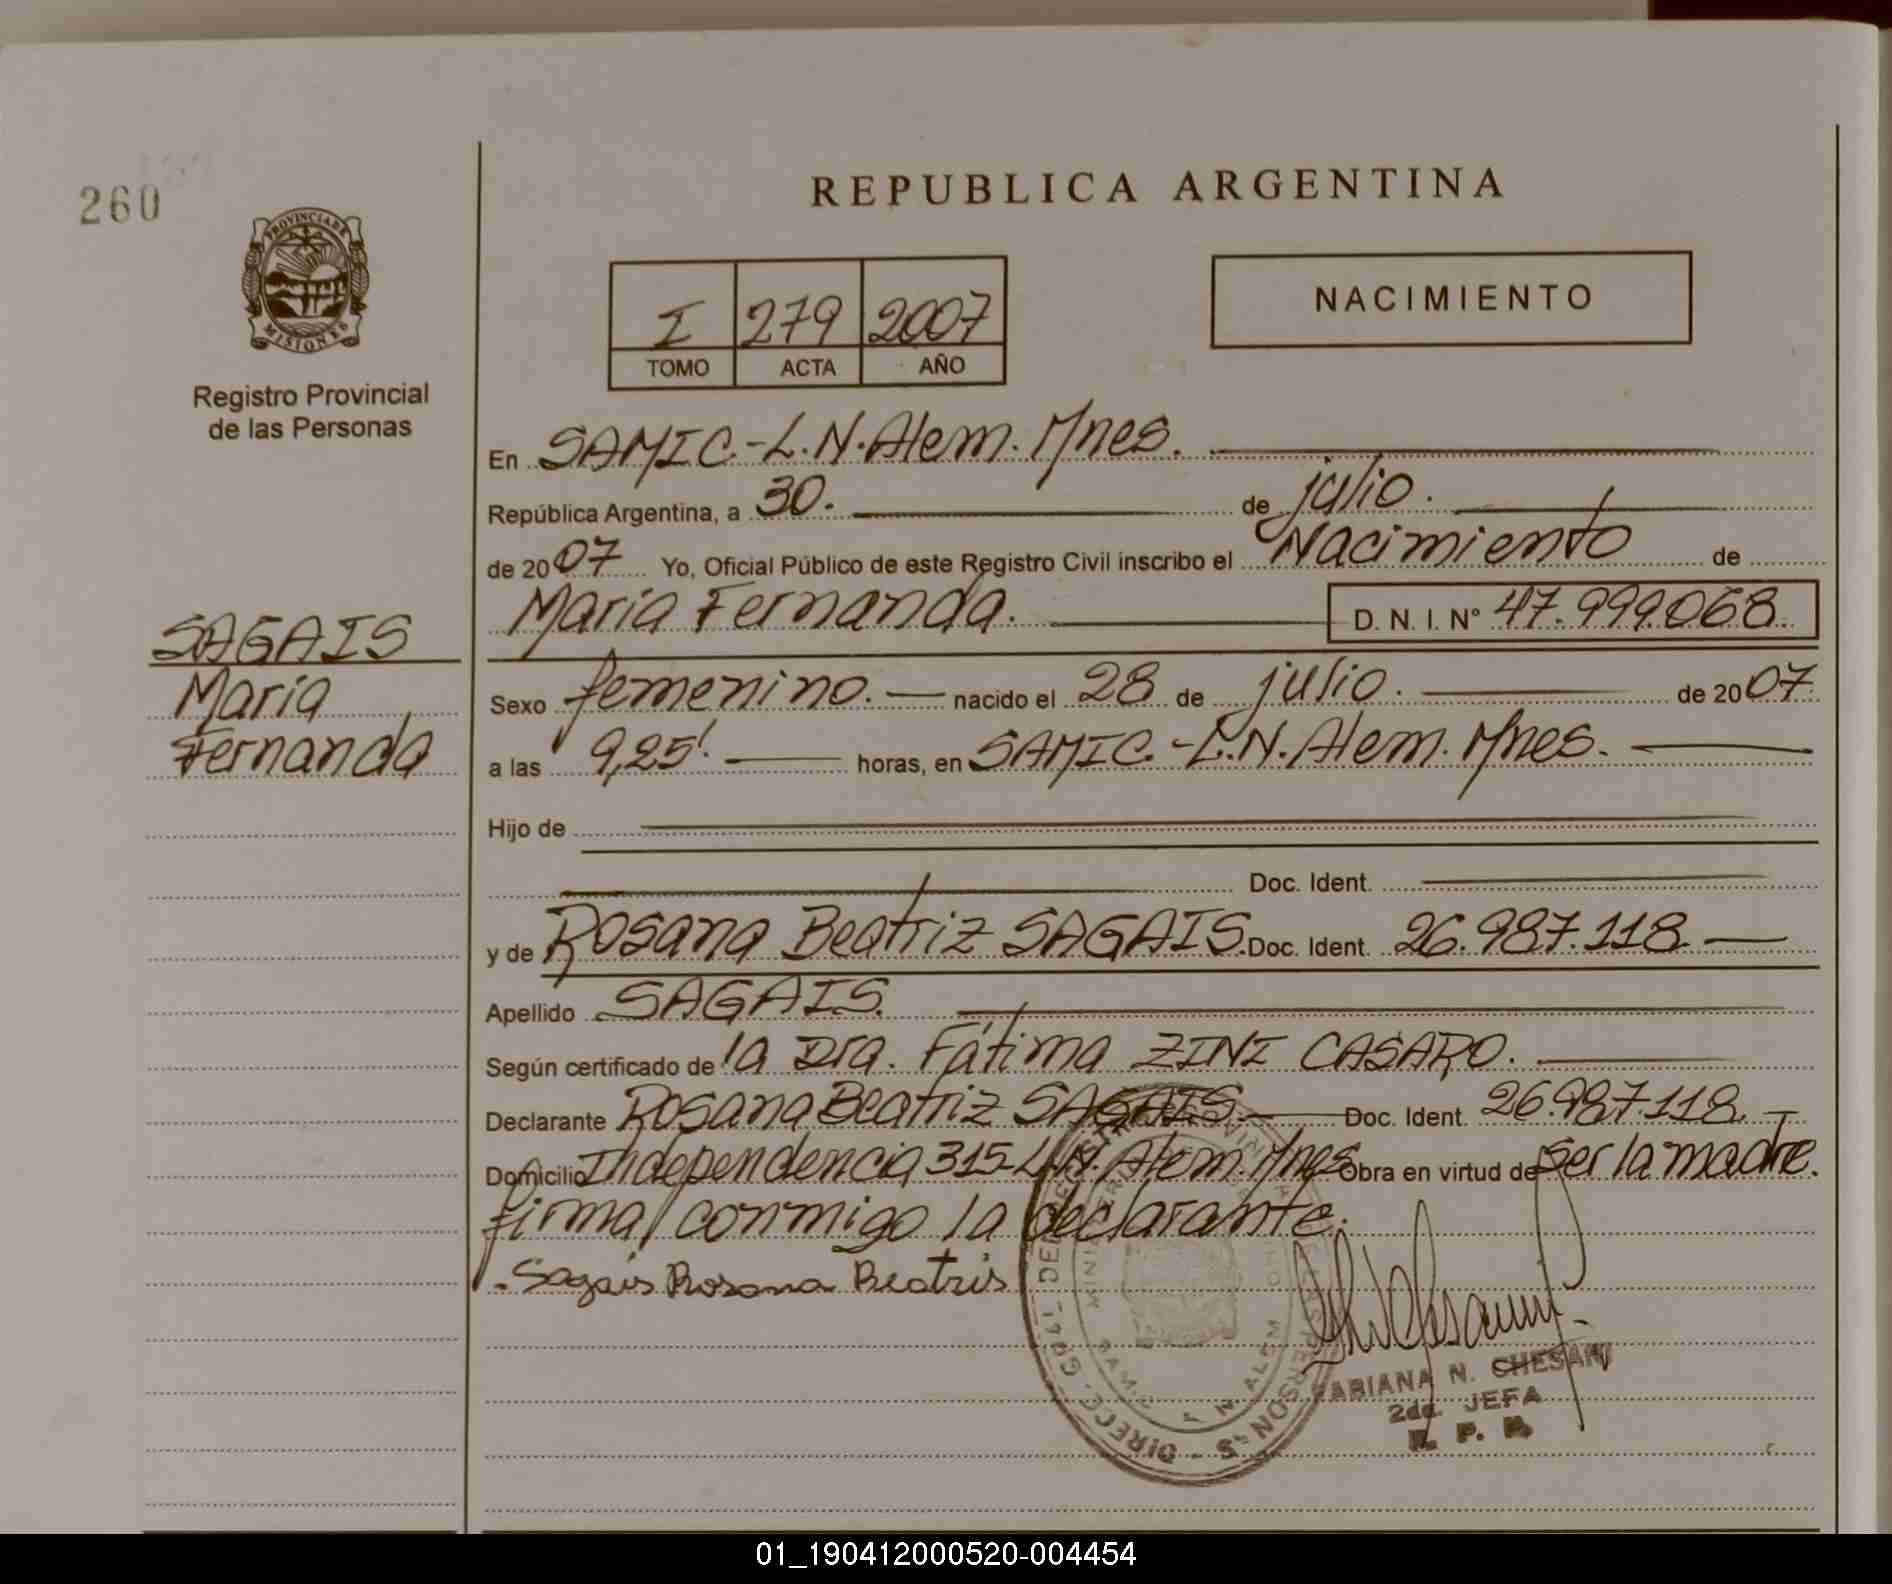 260
PROVINCIA DE
MISIONES
Registro Provincial
de las Personas
REPUBLICA ARGENTINA
I 279 2007
TOMO ACTA AÑO
NACIMIENTO
En SAMIC.-L.N.Alem. Mnes.
República Argentina, a 30. de julio.
de 2007 Yo, Oficial Público de este Registro Civil inscribo el Nacimiento de
María Fernanda. D. N. I. Nº 47.999.068.
SAGAIS
María
Fernanda
Sexo femenino. nacido el 28 de julio. de 2007.
a las 9,25'. horas, en SAMIC.-L.N.Alem. Mnes.
Hijo de
Doc. Ident.
y de Rosana Beatriz SAGAIS. Doc. Ident. 26.987.118.
Apellido SAGAIS.
Según certificado de la Dra. Fátima ZINI CASARO.
Declarante Rosana Beatriz SAGAIS. Doc. Ident. 26.987.118.
Domicilio Independencia 315-L.N. Alem. Mnes Obra en virtud de ser la madre.
firma conmigo la declarante.
Sagais Rosana Beatris
FABIANA N. CHESANI
2da. JEFA
R. P. P.
01_190412000520-004454